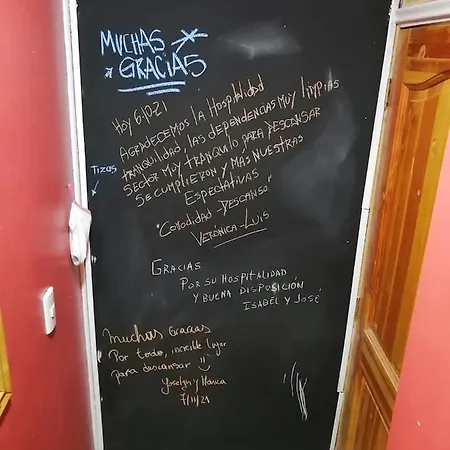 MUCHAS
GRACIAS
Hoy 6-12-21
AGRADECEMOS LA HOSPITALIDAD
TRANQUILIDAD, LAS DEPENDENCIAS MUY LIMPIAS
SECTOR MUY TRANQUILO PARA DESCANSAR
SE CUMPLIERON Y MAS NUESTRAS
ESPECTATIVAS
"COMODIDAD - DESCANSO."
VERÓNICA - LUIS
Tizas
GRACIAS
POR SU HOSPITALIDAD
Y BUENA DISPOSICIÓN
ISABEL Y JOSÉ
Muchas Gracias
Por todo, increíble lugar
para descansar
Joselyn y
7/11/21